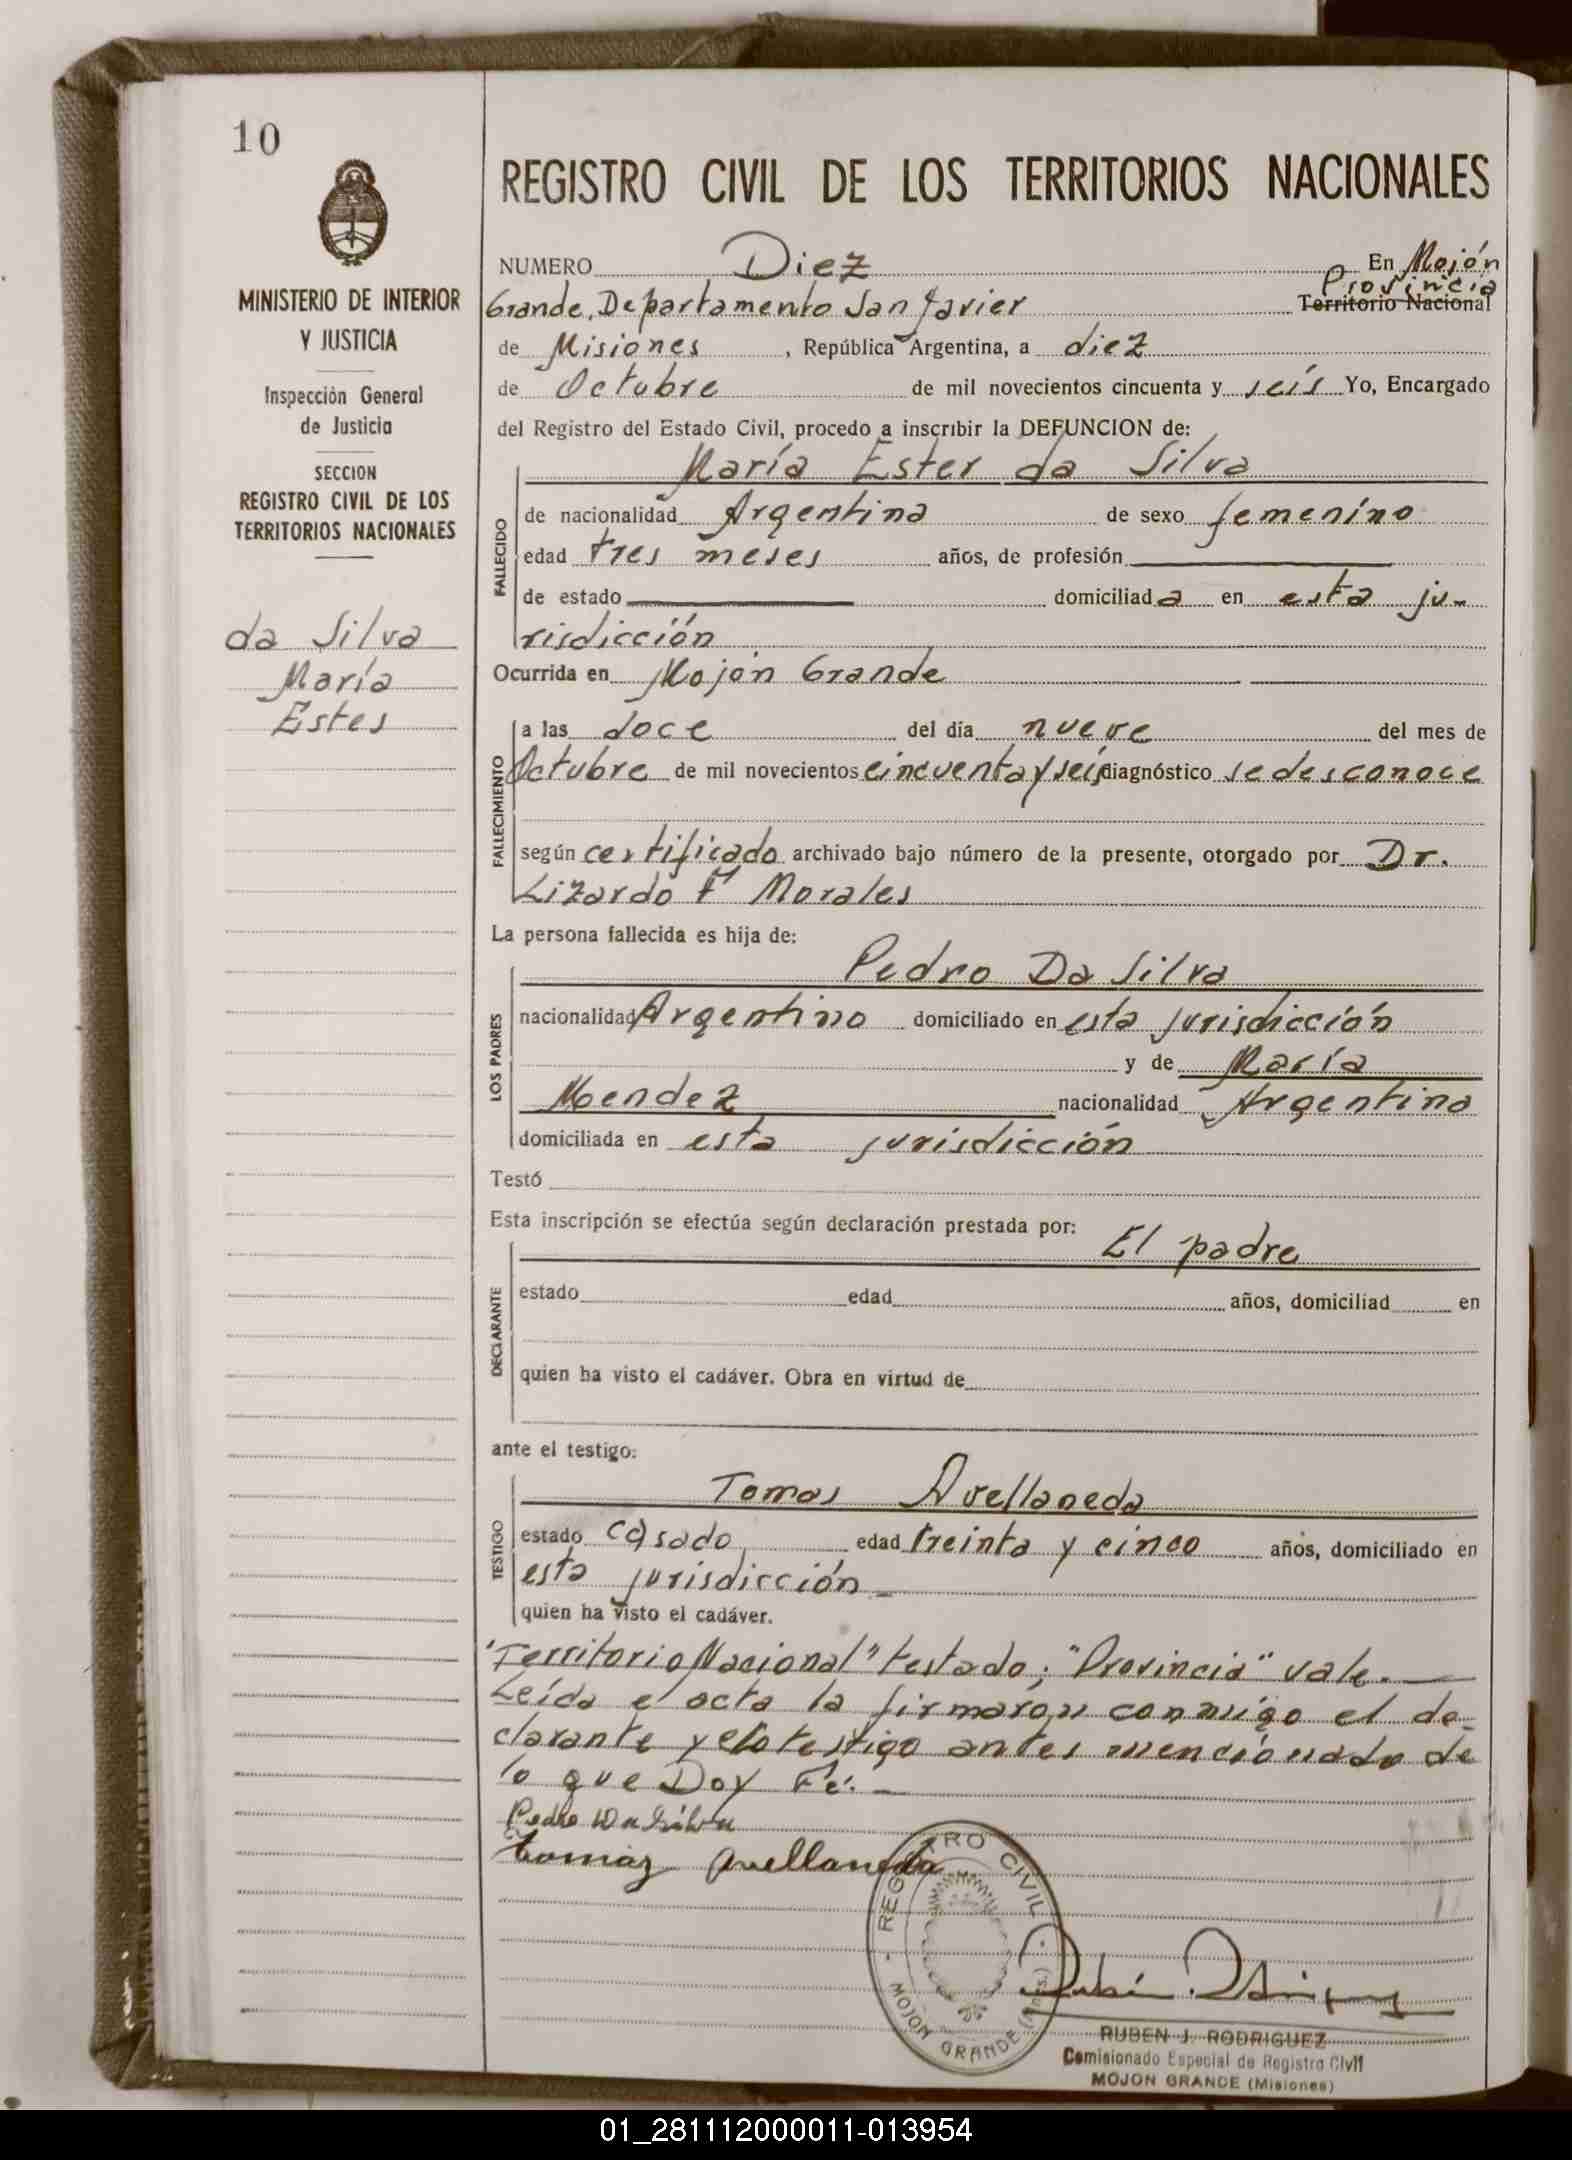 10
MINISTERIO DE INTERIOR
Y JUSTICIA
Inspección General
de Justicia
SECCION
REGISTRO CIVIL DE LOS
TERRITORIOS NACIONALES
da Silva
María
Ester
REGISTRO CIVIL DE LOS TERRITORIOS NACIONALES
NUMERO Diez En Mojón
Provincia
Grande, Departamento San Javier Territorio Nacional
de Misiones, República Argentina, a diez
de Octubre de mil novecientos cincuenta y seis Yo, Encargado
del Registro del Estado Civil, procedo a inscribir la DEFUNCION de:
María Ester da Silva
FALLECIDO
de nacionalidad Argentina de sexo femenino
edad tres meses años, de profesión
de estado domiciliada en esta ju-
risdicción
Ocurrida en Mojón Grande
FALLECIMIENTO
a las doce del día nueve del mes de
Octubre de mil novecientos cincuenta y seis diagnóstico se desconoce
según certificado archivado bajo número de la presente, otorgado por Dr.
Lizardo F Morales
La persona fallecida es hija de:
Pedro Da Silva
LOS PADRES
nacionalidad Argentino domiciliado en esta jurisdicción
y de María
Mendez nacionalidad Argentina
domiciliada en esta jurisdicción
Testó
Esta inscripción se efectúa según declaración prestada por:
El padre
DECLARANTE
estado edad años, domiciliad en
quien ha visto el cadáver. Obra en virtud de
ante el testigo:
Tomas Avellaneda
TESTIGO
estado casado edad treinta y cinco años, domiciliado en
esta jurisdicción
quien ha visto el cadáver.
"Territorio Nacional" testado; "Provincia" vale.
Leída el acta la firmaron conmigo el de-
clarante y el testigo antes mencionado de
lo que Doy Fé.
Pedro Da Silva
Tomaz Avellaneda
REGISTRO CIVIL
MOJON GRANDE (Mnes.)
RUBEN J. RODRIGUEZ
Comisionado Especial de Registro Civil
MOJON GRANDE (Misiones)
01_281112000011-013954